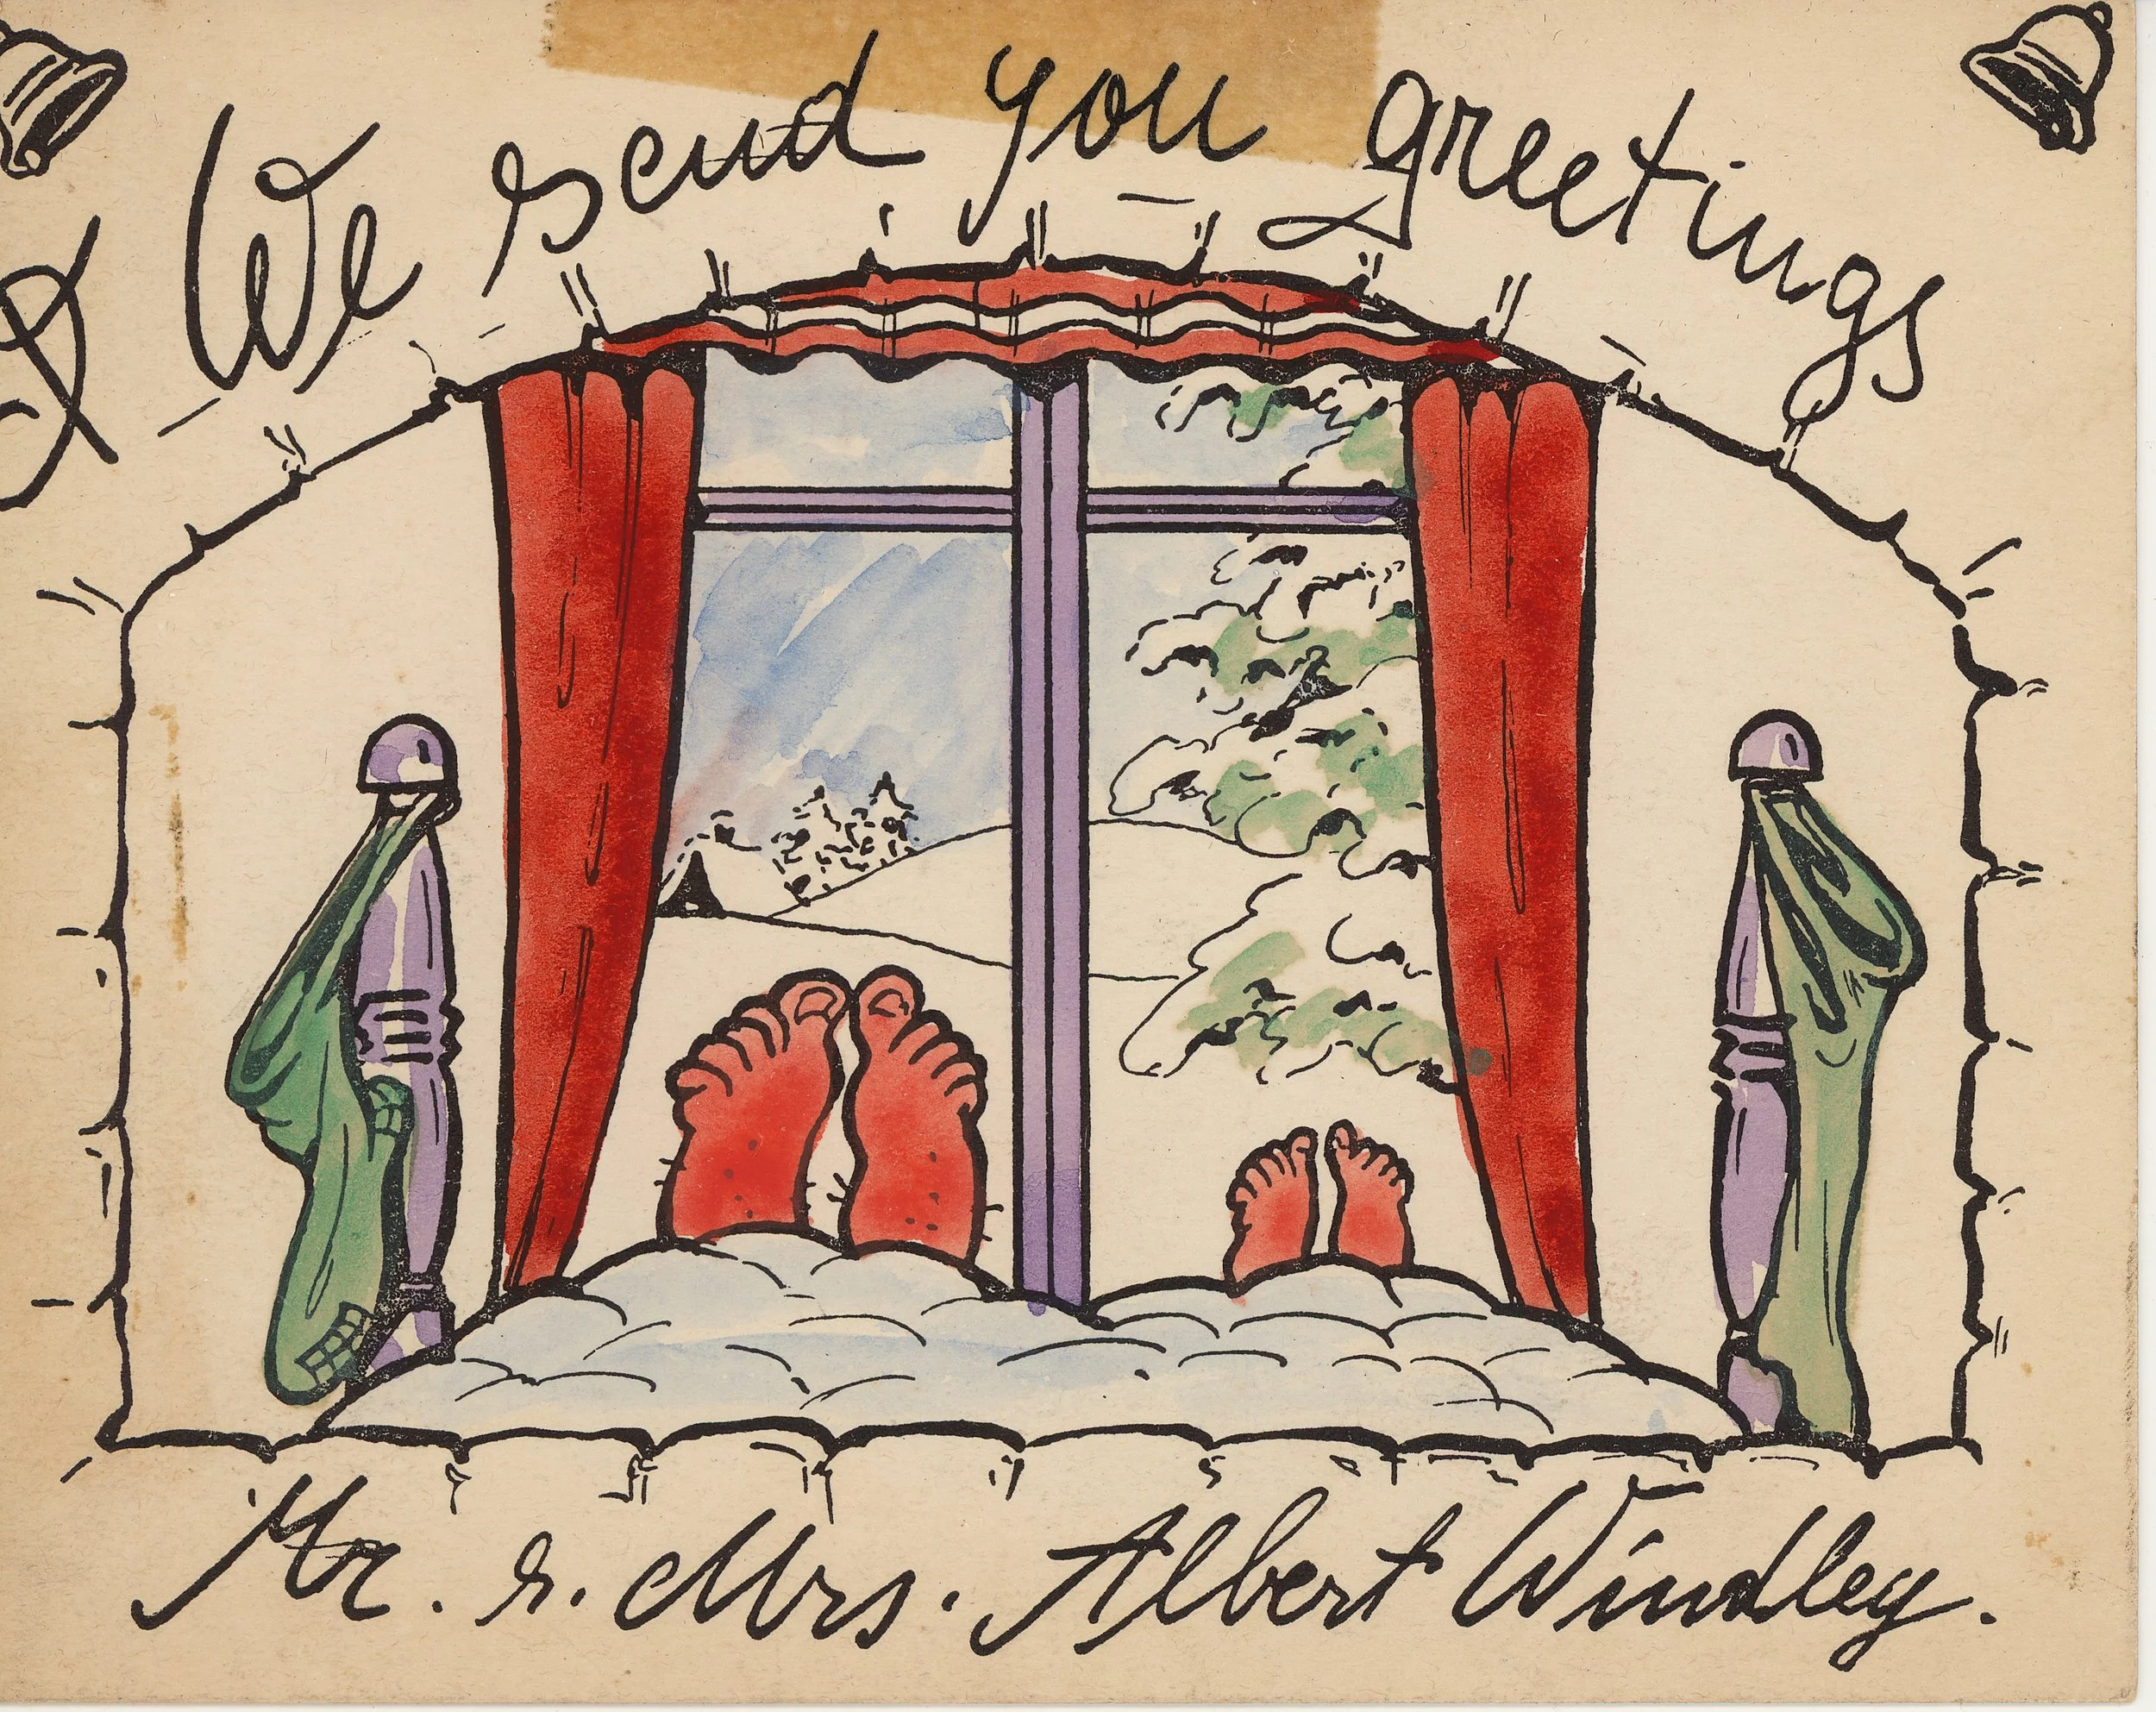 We send you greetings
Mr. & Mrs. Albert Windley.